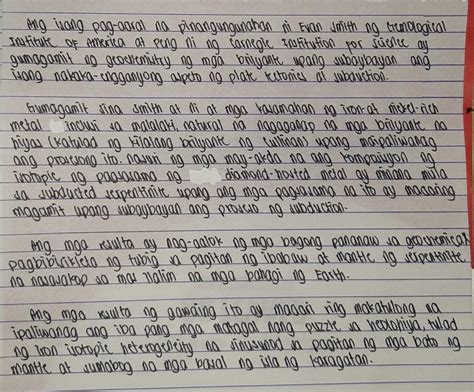 Ang isang pag-aaral na pinangungunahan ni Evan Smith ng Gemological
Institute of America at Peng Ni ng Carnegie Institution for Science ay
gumagamit ng geochemistry ng mga brilyante upang subaybayan ang
isang nakaka-engganyong aspeto ng plate tectonics at subduction.
Gumagamit sina Smith at Ni at mga kasamahan ng iron-at nickel-rich
metal inclusi sa malalaki, natural na nagaganap na mga brilyante na
piyas (katulad ng kilalang brilyante ng Cullinan) upang maipaliwanag
ang prosesong ito. nasuri ng mga may-akda na ang komposisyon ng
isotopic ng pagsasama ng diamond-hosted metal ay minana mula
sa subducted serpentinite upang ang mga pagsasama na ito ay maaaring
magamit upang subaybayan ang proseso ng subduction.
Ang mga resulta ay nag-aalok ng mga bagong pananaw sa geochemical
pagbibisikleta ng tubig sa pagitan ng ibabaw at mantle ng serpentinite
na nasasakop sa mas ilalim na mga bahagi ng Earth.
Ang mga resulta ng gawaing ito ay maaari ring makatulong na
ipaliwanag ang iba pang mga matagal nang puzzle sa heolohiya, tulad
ng iron isotopic heterogeneity na sinusunod sa pagitan ng mga bato ng
mantle at sumabog na mga basal ng isla ng karagatan.